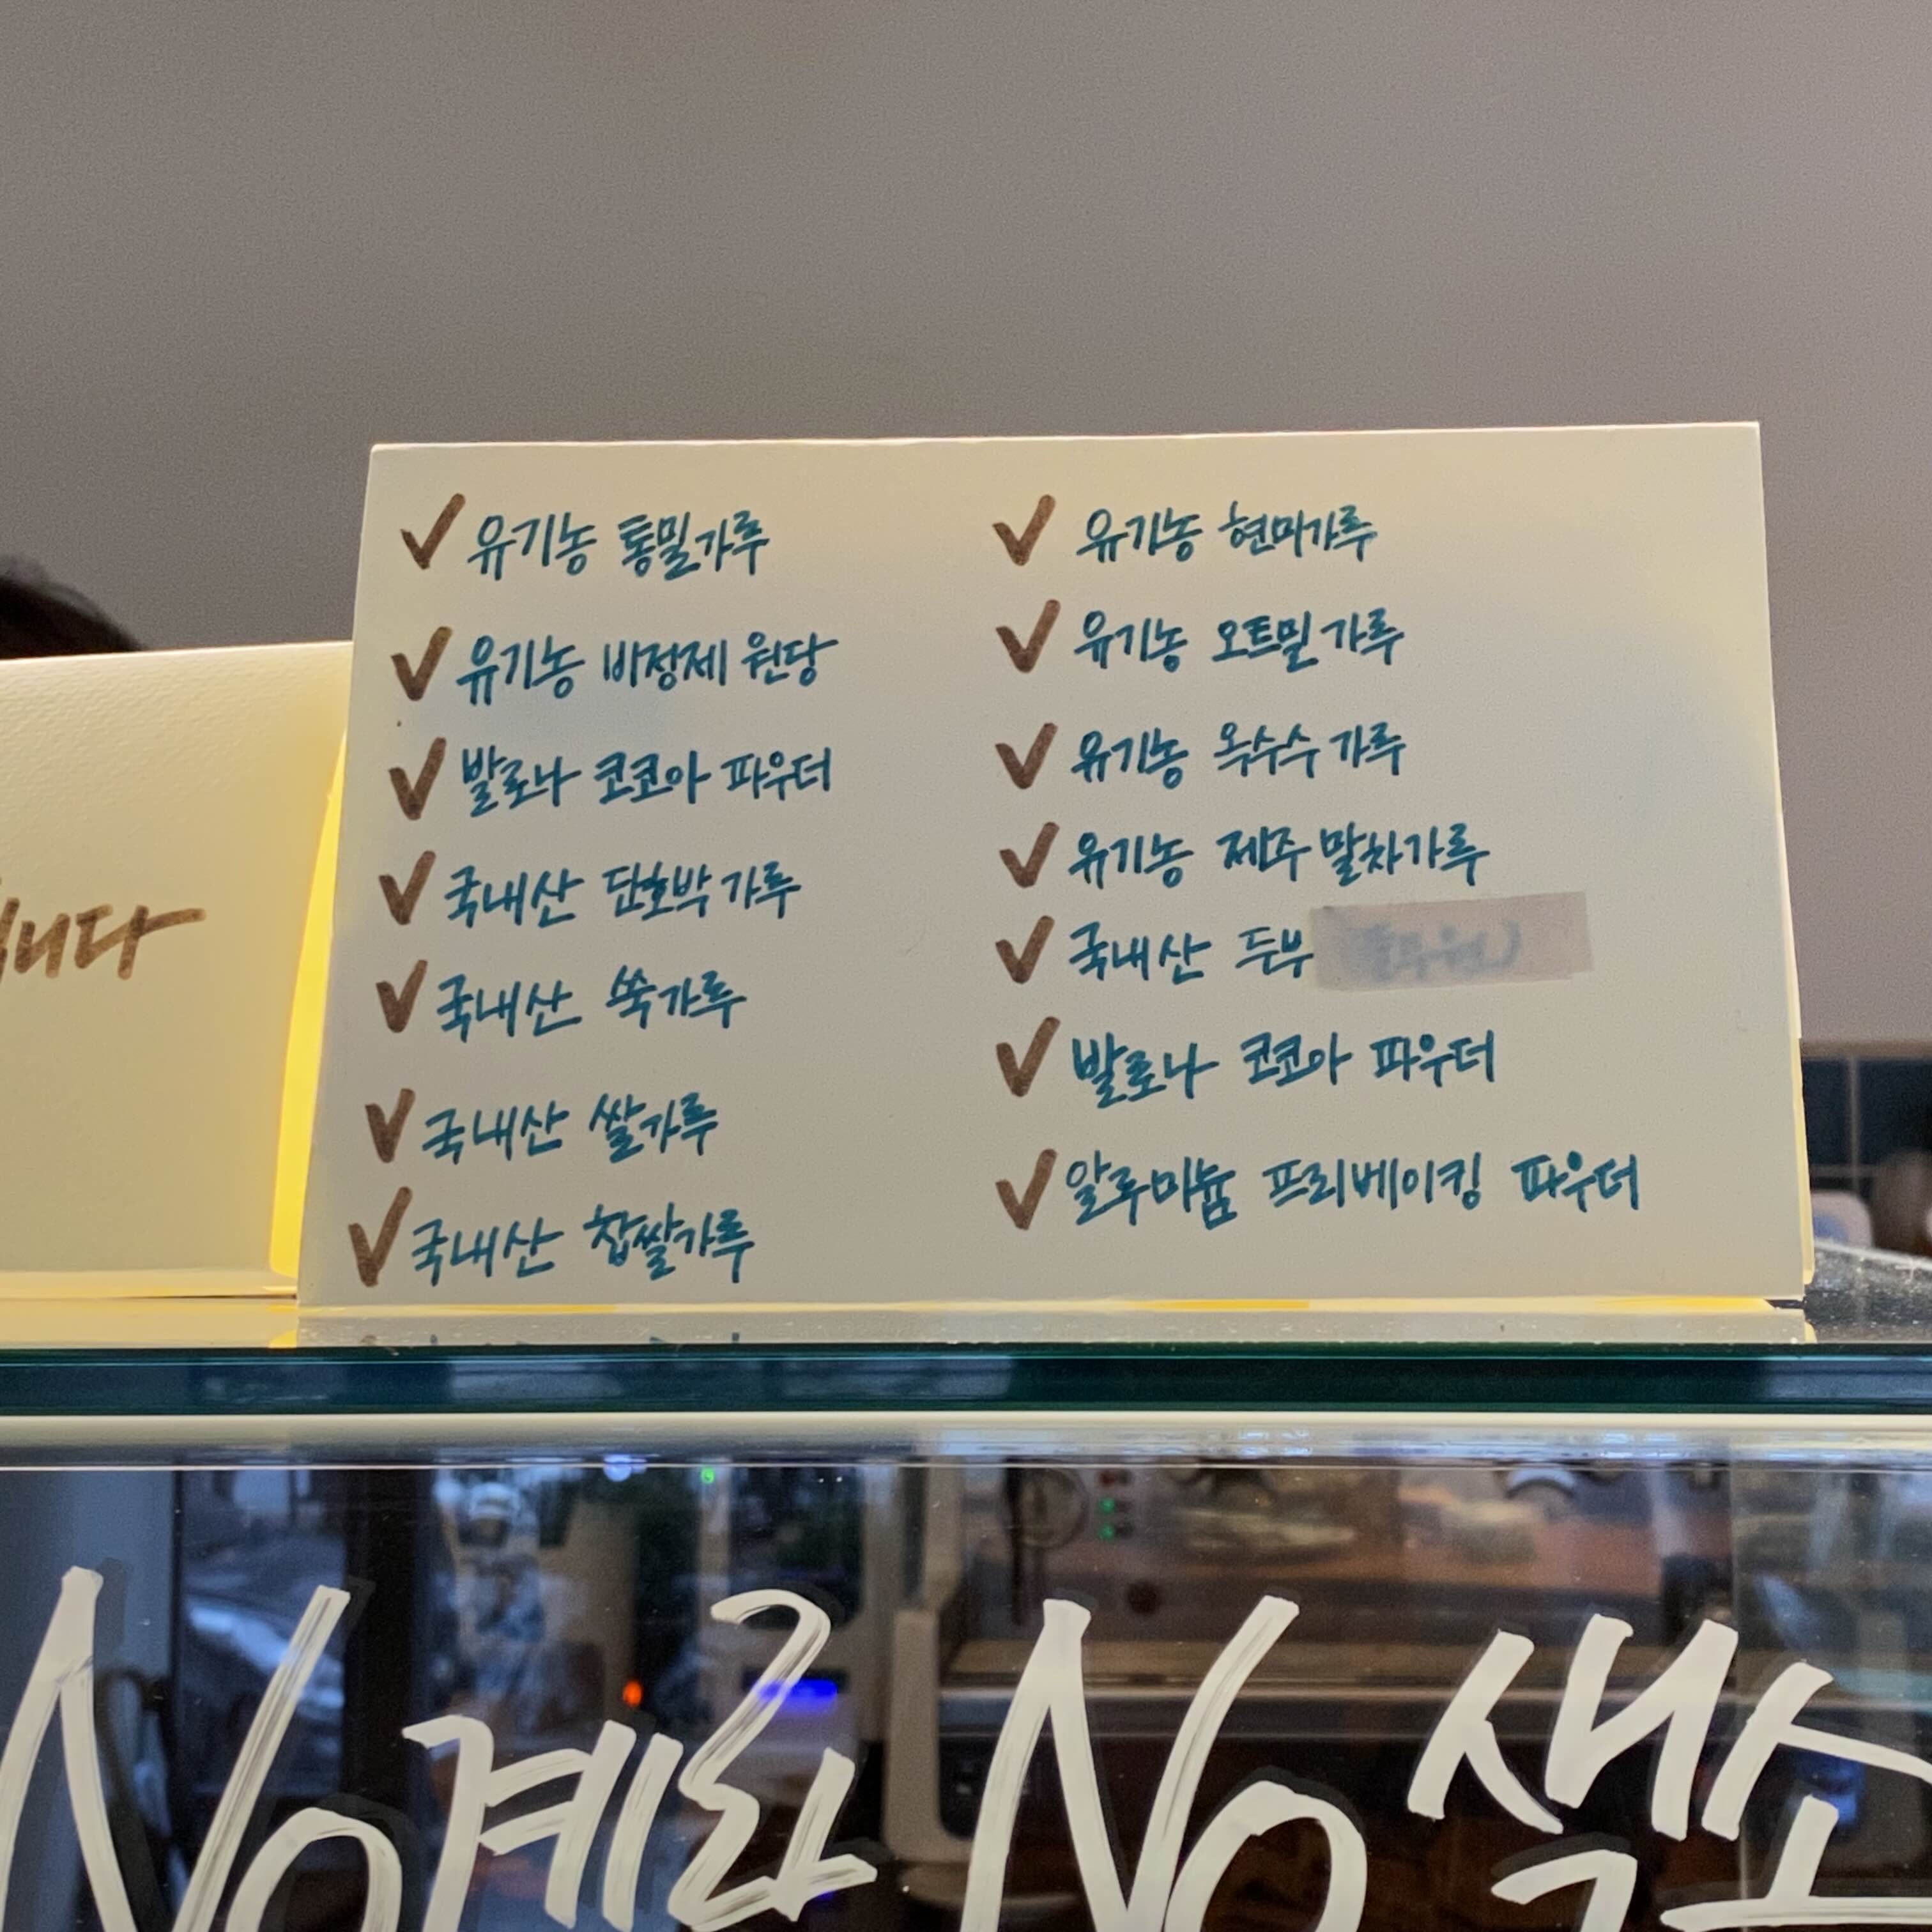 유기농 통밀가루
유기농 비정제 원당
발로나 코코아 파우더
국내산 단호박가루
국내산 쑥가루
국내산 쌀가루
국내산 찹쌀가루
유기농 현미가루
유기농 오트밀가루
유기농 옥수수가루
유기농 제주말차가루
국내산 두부
발로나 코코아 파우더
알루미늄 프리베이킹 파우더
니다
No계란 No색소